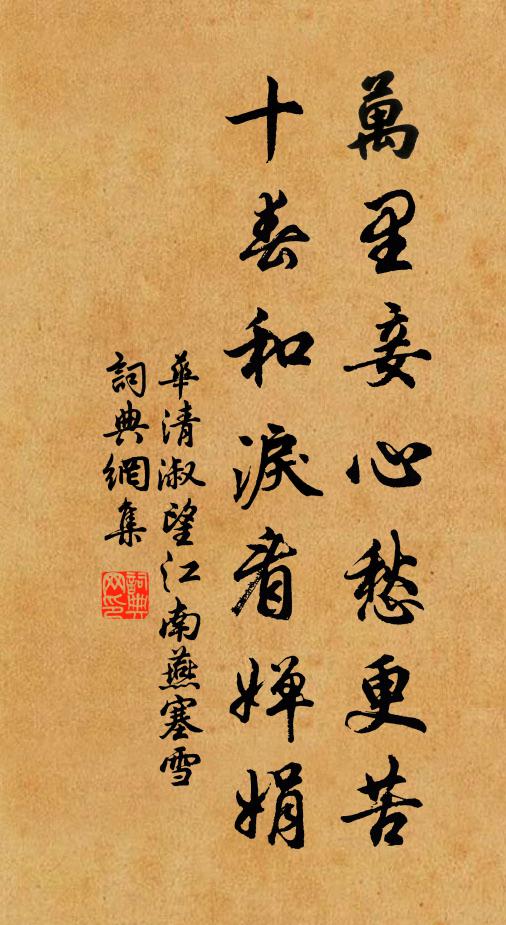 萬里妾心愁更苦
十春和淚看嬋娟
華清淑望江南燕塞雪
詞典網集
詞典網印